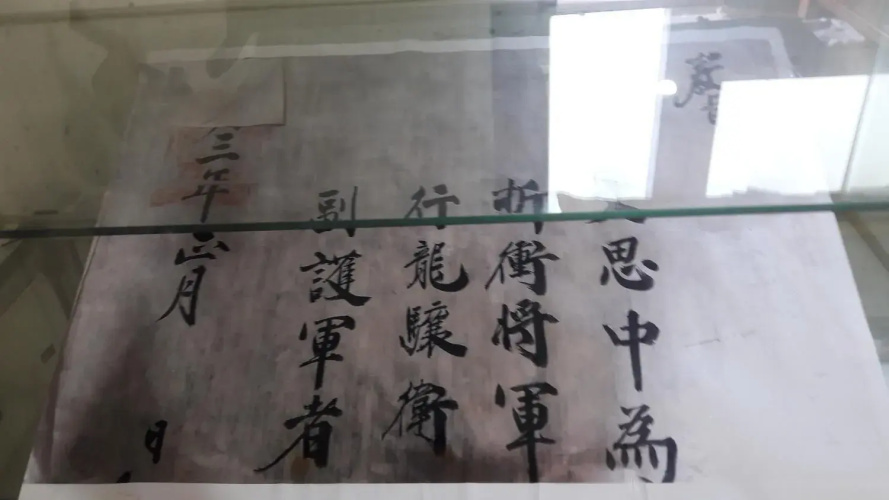 敎
思中為
折衝将軍
行龍驤衛
副護軍者
三年正月
日